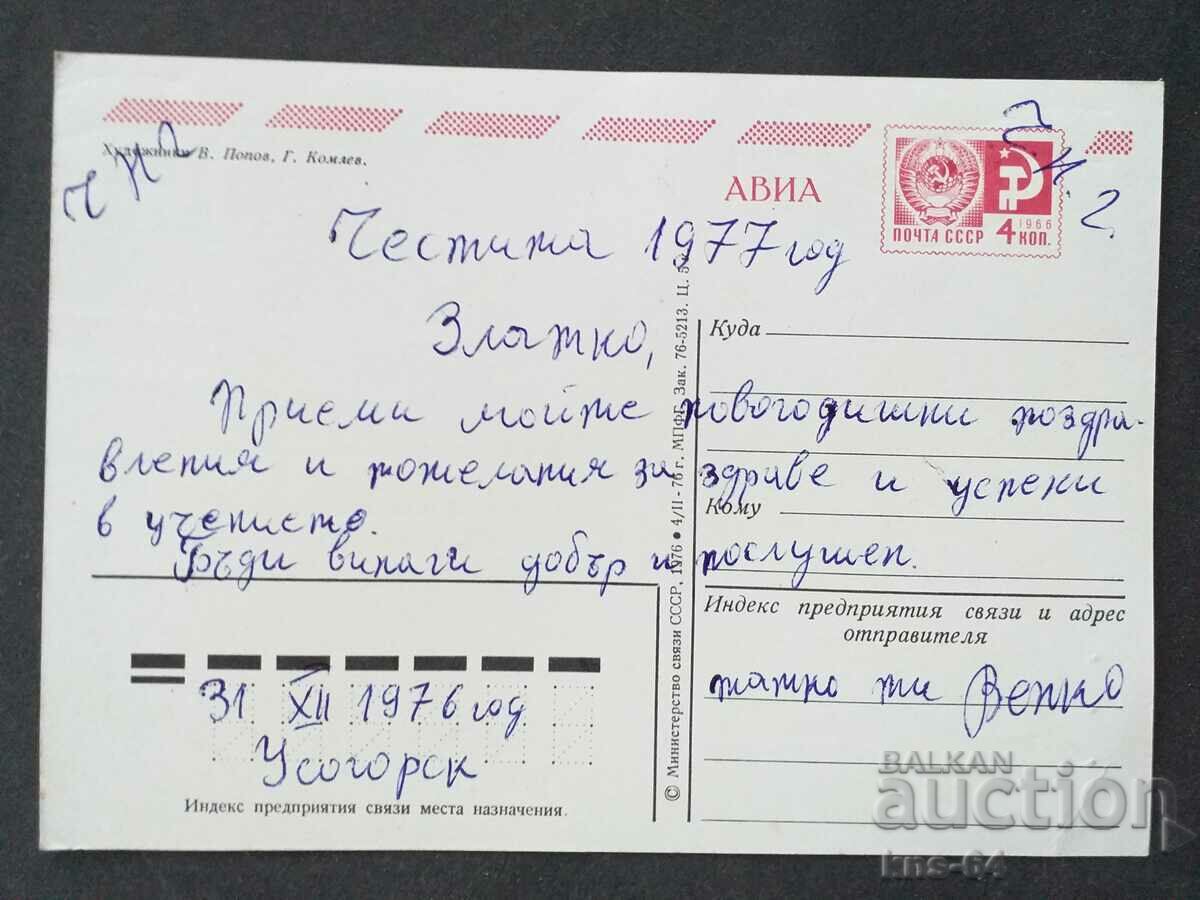 Художники В. Попов, Г. Комлев.
ЧНГ
Ч.Н.Г.
АВИА
ПОЧТА СССР 4 КОП.
1966
Честита 1977 год
Златко,
Приеми мойте новогодишни поздра-
вления и пожелания за здраве и успехи
в учението.
Бъди винаги добър и послушен.
Куда
Кому
Индекс предприятия связи и адрес
отправителя
татко ти Венко
31 XII 1976 год
Усогорск
Индекс предприятия связи места назначения.
© Министерство связи СССР, 1976 • 4/II-76 г. МПФГ. Зак. 76-5213. Ц. 5
BALKAN
auction
kns-64